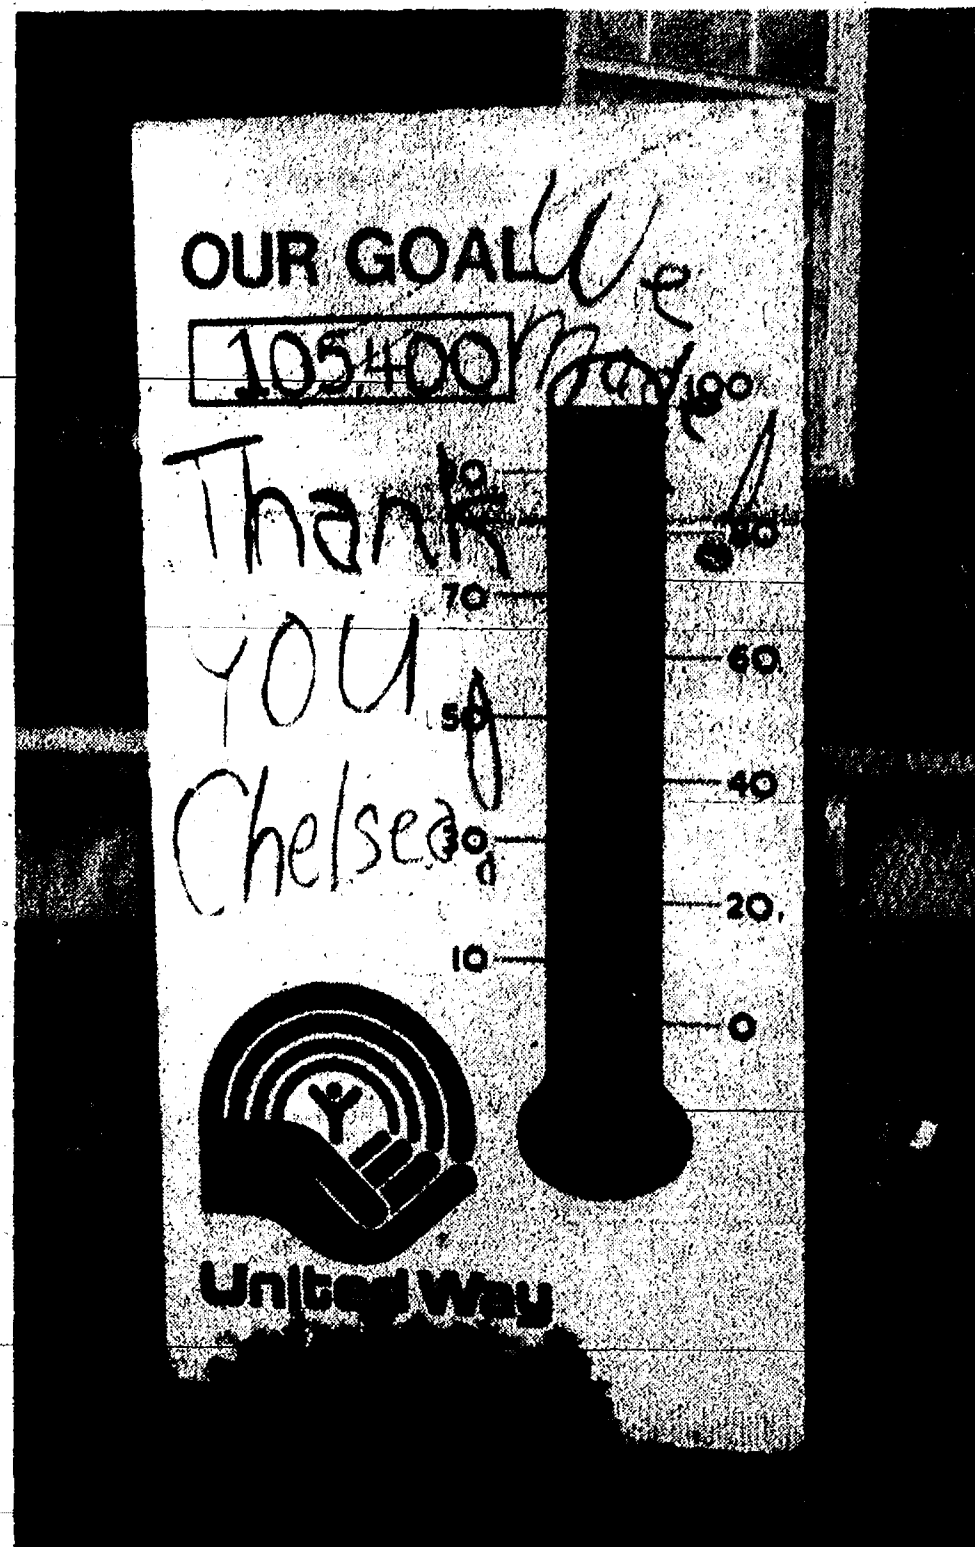 OUR GOAL
105,400
We
made
!
Thank
you
Chelsea!
100
90
80
70
60
50
40
30
20
10
0
United Way